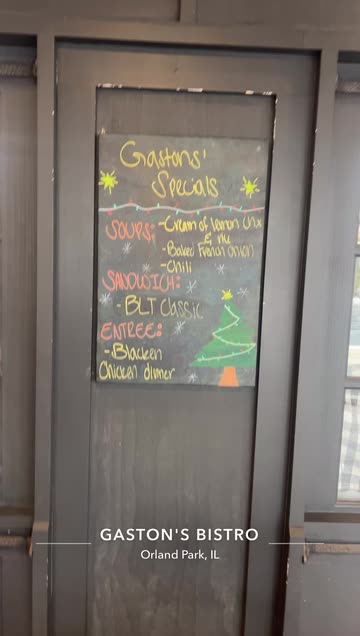 Gastons'
Specials
SOUPS: -Cream of lemon chx
& rice
-Baked French Onion
-Chili
SANDWICH:
-BLT Classic
ENTREE:
-Blacken
Chicken dinner
GASTON'S BISTRO
Orland Park, IL